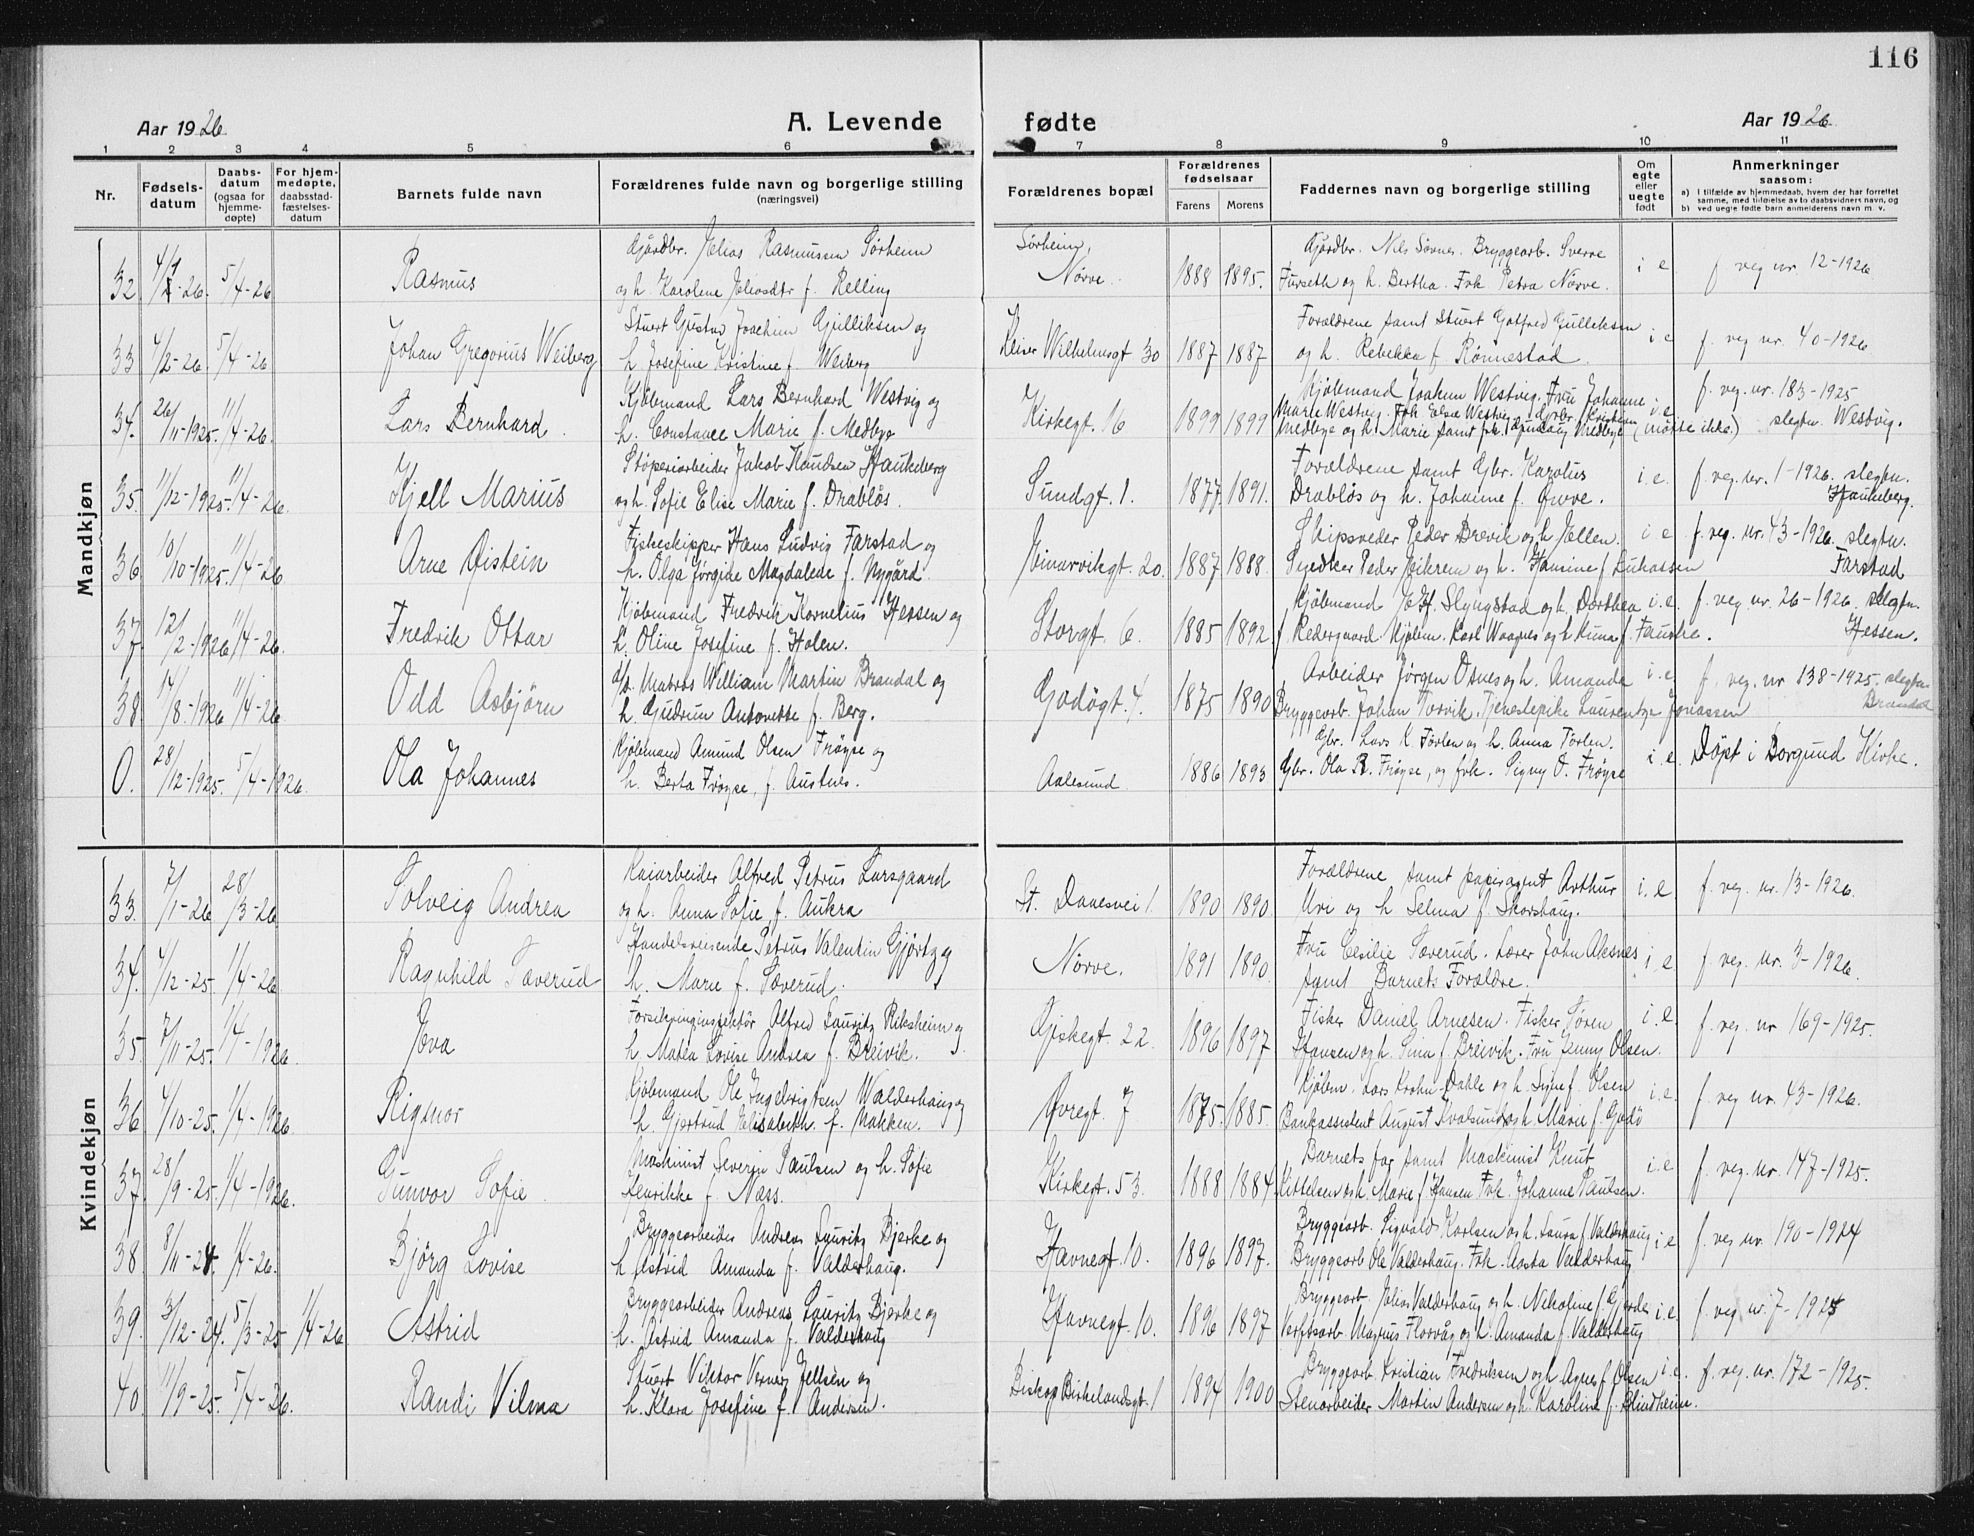 116
Aar 1926
A. Levende fødte
Aar 1926
1 2 3 4 5 6 7 8 9 10 11
Nr.
Fødsels-
datum
Daabs-
datum
(ogsaa for
hjemme-
døpte)
For hjem-
medøpte,
daabsstad-
fæstelses-
datum
Barnets fulde navn
Forældrenes fulde navn og borgerlige stilling
(næringsvei)
Forældrenes bopæl
Forældrenes
fødselsaar
Farens Morens
Faddernes navn og borgerlige stilling
Om
egte
eller
uegte
født
Anmerkninger
saasom:
a) I tilfælde av hjemmedaab, hvem der har forrettet
samme, med tilføielse av to daabsvidners navn, og
b) ved uegte fødte barn anmelderens navn m. v.
Mandkjøn
32 4/1-26. 5/4-26 Rasmus
Gjårdbr. Rasmussen Sørheim
og h. Karolene f. Relling
Sørheim,
Nørve. 1888 1895.
Gjårdbr. Nils Sovnes. Bryggearb. Sverre
Furseth og h. Bertha. Frk Petra Nørve.
i e. f veg nr. 12-1926
33 4/2-26. 5/4-26 Johan Gregorius Weiberg
Stuert Gustav Joachim Gulliksen og
h. Josefine Kristine f. Weiberg
Keiser Wilhelmsgt 30 1887 1887
Forældrene samt Stuert Gotfred Gulliksen
og h. Rebekka f. Rønnestad.
i e f. veg nr. 40-1926
34. 26/11-1925. 11/4-26. Lars Bernhard.
Kjøbmand Lars Bernhard Westvig og
h. Constance Marie f. Medbye
Kirkegt. 16 1899 1899
Kjøbmand Joakim Westvig. Fru Johanne
Marie Westvig. Frk Elsa Westvig. Kristian
Medbye og h. Marie samt frk. Medbye (møtte ikke.)
i e. f. veg. nr. 183-1925
slegtn. Westvig.
35. 11/12-1925. 11/4-26. Kjell Marius
Støperiarbeider Jakob Knudsen Haukeberg
og h. Sofie Elise Marie f. Drabløs.
Sundgt. 1. 1877. 1891.
Forældrene samt Gbr. Karolus
Drabløs og h. Johanne f.
i e. f. veg. nr. 1-1926. slegtn.
Haukeberg.
36 10/10-1925. 11/4-26. Arne Øistein
Fiskeskipper Hans Ludvig Farstad og
h. Olga Jørgine Magdalede f. Nygård.
Einarvikgt. 20. 1887 1888.
Skipsreder Peder Brevik og h Ellen.
Snedker Peder Eikrem og h. Hansine f Lukassen
i e f. veg. nr. 43-1926. slegtn.
Farstad
37. 12/2-1926 11/4-26. Fredrik Ottar
Kjøbmand Fredrik Kornelius Hessen og
h. Oline Josefine f. Holen.
Storgt. 6. 1885 1892.
Kjøbmand Slyngstad og h. Dorthea
f Rødergaard Kjøbm. Karl Waagnes og h Kuna f. Fauske.
i.e. f. veg nr. 26-1926. slegtn.
Hessen.
38. 14/8-1926 11/4-26 Odd Asbjørn
Matros William Martin Brandal og
h. Gudrun Antonette f. Berg.
Godøgt. 4. 1875 1890
Arbeider Jørgen Osnes og h. Amanda
Bryggearb. Johan Torvik. Tjenestepike Laurentze Jonassen
i.e. f. veg. nr 138-1925. slegtn.
Brandal
0. 28/12-1925. 5/4-1926. Ola Johannes
Kjøbmand Amund Olsen Frøyse og
h. Berta Frøyse, f. Austnes.
Aalesund. 1886 1893
Gbr. Lars K Tørlen og h. Anna Tørlen.
Gbr. Ola R. Frøyse, og frk. Signy O. Frøyse
i.e. Døpt i Borgund Kirke.
Kvindekjøn
33. 7/1-26 28/3-26 Solveig Andrea
Kaiarbeider Alfred Petrus Larsgaard
og h. Anna Sofie f. Aukra
St. Danesvei 1. 1890 1890
Forældrene samt papiragent Arthur
Uri og h Selma f. Skorshaug.
i.e. f. veg. nr. 13-1926.
34. 4/12-25. 1/4-26 Ragnhild Sæverud
Handelsreisende Petrus Valentin Gjørtz og
h. Marie f. Sæverud.
Nørve. 1891 1890.
Fru Cecilie Sæverud. Lærer John Aksnes
samt Barnets Forældre.
i.e. f. veg. nr. 3-1926.
35. 7/11-25. 1/4-1926. Eva
Forsikringinspektør Alfred Lauritz Riksheim og
h. Matea Lovise Andrea f. Breivik.
Giskegt. 22. 1896 1897
Fisker Daniel Arnesen. Fisker Søren
Hansen og h. Sina f. Breivik. Fru Jenny Olsen.
i.e. f. veg. nr 169-1925.
36 4/10-25. 1/4-1926. Rigmor
Kjøbmand Ole Ingebrigtsen Walderhaug og
h. Gjertrud Elisabeth. f. Makken.
Øvregt. 7 1875. 1885.
Kjøbm. Lars Krohn-Dahle og h. Signe f. Olsen
Bankassistent August Kvalsund og h Marie f. Godø
i.e. f veg nr. 43-1926.
37. 28/9-25. 1/4-1926. Gunvor Sofie.
Maskinist Severin Paulsen og h. Sofie
Henrikke f. Næss.
Kirkegt. 53. 1888 1884
Barnets far samt Maskinist Knut
Kittelsen og h. Marie f Hansen Frk. Johanne Paulsen.
i.e f. veg. nr. 147-1925.
38. 8/11-24. 1/4-26. Bjørg Lovise
Bryggearbeider Andreas Lauritz Bjerke og
h Astrid Amanda f. Valderhaug.
Havnegt. 10. 1896 1897.
Bryggearb. Sigvald Karlsen og h. Laura f. Valderhaug
Bryggearb Ole Valderhaug. Frk. Aasta Valderhaug
i e f. veg nr. 190-1924
39. 3/12-24. 5/3-25 1/4-26 Astrid
Bryggearbeider Andreas Lauritz Bjerke og
h. Astrid Amanda f. Valderhaug
Havnegt. 10. 1896 1897
Bryggearb. Elias Valderhaug og h. Nikoline f. Gjerde
Verftsarb. Magnus Florvåg og h. Amanda f. Valderhaug
i e. f. veg. nr. 7-1925
40. 11/9-25. 5/4-26. Randi Vilma
Stuert Viktor Verner Jellsen og
h. Klara Josefine f. Andersen.
Biskop Birkelandsgt. 1 1894 1900
Bryggearb. Kristian Fredriksen og h Agnes f Olsen
Stenarbeider Martin Andersen og h. Karoline f. Blindheim.
i.e. f. veg. nr. 172-1925.